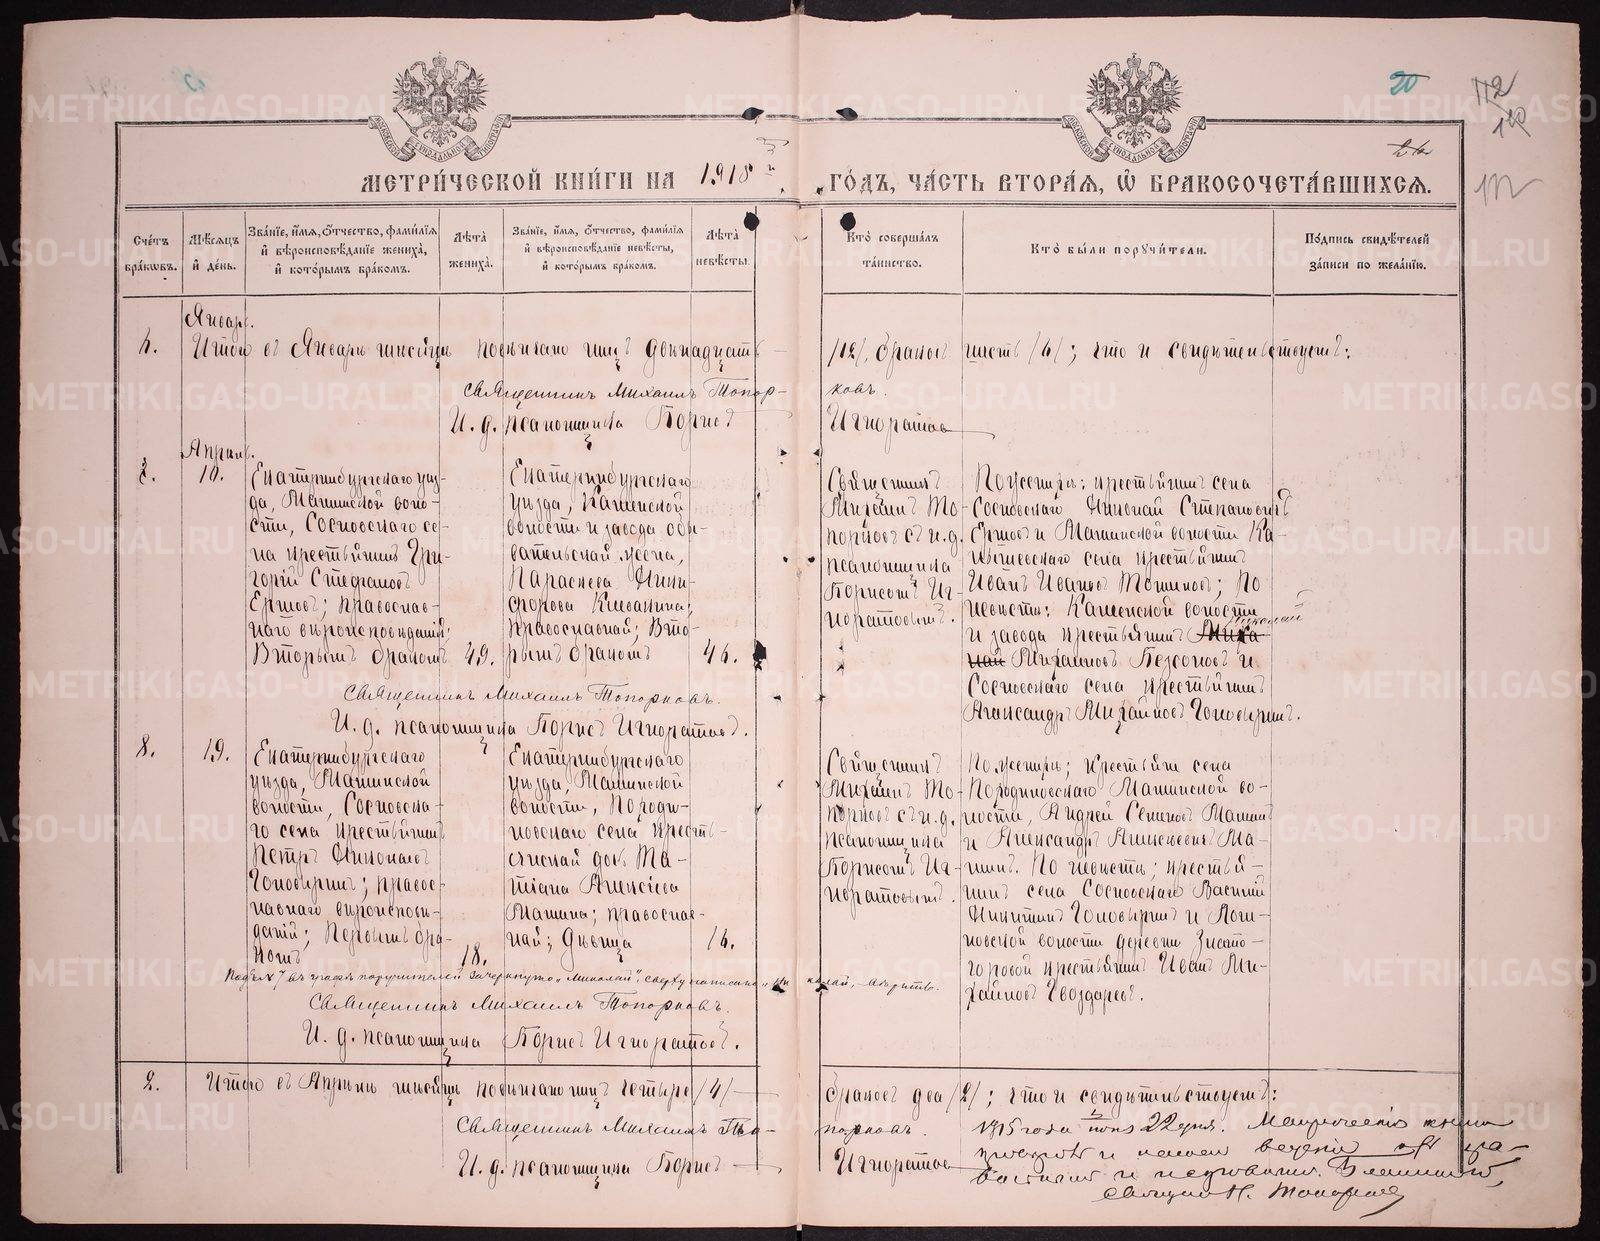 МЕТРИЧЕСКОЙ КНИГИ НА 1918 й ГОДЪ, ЧАСТЬ ВТОРАЯ, Ѿ БРАКОСОЧЕТАВШИХСЯ.
20
112
Счетъ браковъ.
Мѣсяцъ и день.
Званіе, имя, отчество, фамилія и вѣроисповѣданіе жениха, и которымъ бракомъ.
Лѣта жениха.
Званіе, имя, отчество, фамилія и вѣроисповѣданіе невѣсты, и которымъ бракомъ.
Лѣта невѣсты.
Кто совершалъ таинство.
Кто были поручители.
Подпись свидѣтелей записи по желанію.
Январь.
Итого въ Январѣ мѣсяцѣ повѣнчано лицъ двѣнадцать /12/, браковъ шесть /6/; что и свидѣтельствуемъ:
Священникъ Михаилъ Топорковъ.
И. д. псаломщика Борисъ Игноратовъ
Апрѣль.
10.
Екатеринбургскаго уѣз-
да, Маминской воло-
сти, Сосновскаго се-
ла крестьянинъ Гри-
горій Стефановъ
Ершовъ; православ-
наго вѣроисповѣданія;
Вторымъ бракомъ
49.
Екатеринбургскаго
уѣзда, Каменской
волости и завода обы-
вательская жена,
Параскева Ники-
форова Клевакина;
православная; Вто-
рымъ бракомъ
46.
Священникъ
Михаилъ То-
порковъ съ и. д.
псаломщика
Борисомъ Иг-
норатовымъ.
По женихѣ: крестьянинъ села
Сосновскаго Николай Степановичъ
Ершовъ и Маминской волости Ка-
мышевскаго села крестьянинъ
Иванъ Ивановъ Тошиковъ; По
невѣстѣ: Каменской волости
и завода крестьянинъ Миха
Николай
илъ Михаиловъ Безсоновъ и
Сосновскаго села крестьянинъ
Александръ Михайловъ Головыринъ.
Священникъ Михаилъ Топорковъ.
И. д. псаломщика Борисъ Игноратовъ.
8.
19.
Екатеринбургскаго
уѣзда, Маминской
волости, Сосновска-
го села крестьянинъ
Петръ Николаевъ
Головыринъ; правос-
лавнаго вѣроисповѣ-
данія; Первымъ бра-
комъ
18.
Екатеринбургскаго
уѣзда, Маминской
волости, Породи-
новскаго села, кресть-
янская дочь Та-
тіана Алексѣева
Мамина; православ-
ная; Дѣвица
16.
Священникъ
Михаилъ То-
порковъ съ и. д.
псаломщика
Борисомъ Иг-
норатовымъ.
По женихѣ; крестьяне села
Породиновскаго Маминской во-
лости, Андрей Семеновъ Маминъ
и Александръ Алексѣевичъ Ма-
минъ. По невѣстѣ; крестья-
нинъ села Сосновскаго Василій
Никитинъ Головыринъ и Логи-
новской волости деревни Злато-
горовой крестьянинъ Иванъ Ми-
хайловъ Гвоздаревъ.
Священникъ Михаилъ Топорковъ.
И. д. псаломщика Борисъ Игноратовъ.
2.
Итого въ Апрѣлѣ мѣсяцѣ повѣнчано лицъ четыре /4/ браковъ два /2/; что и свидѣтельствуемъ:
Священникъ Михаилъ Топорковъ.
И. д. псаломщика Борисъ Игноратовъ